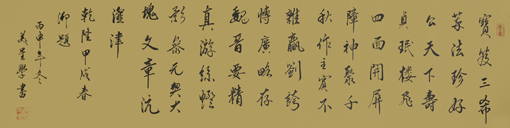 寶笈三希
萃法珍好
公天下壽
貞珉樓飛
四面開屏
障神聚千
秋作主賓不
雜嬴劉誇
博廣略存
魏晉要精
真游絲燈
影參元奧大
塊文章沆
瀣津
乾隆甲戌春
御題
丙申年冬
學書